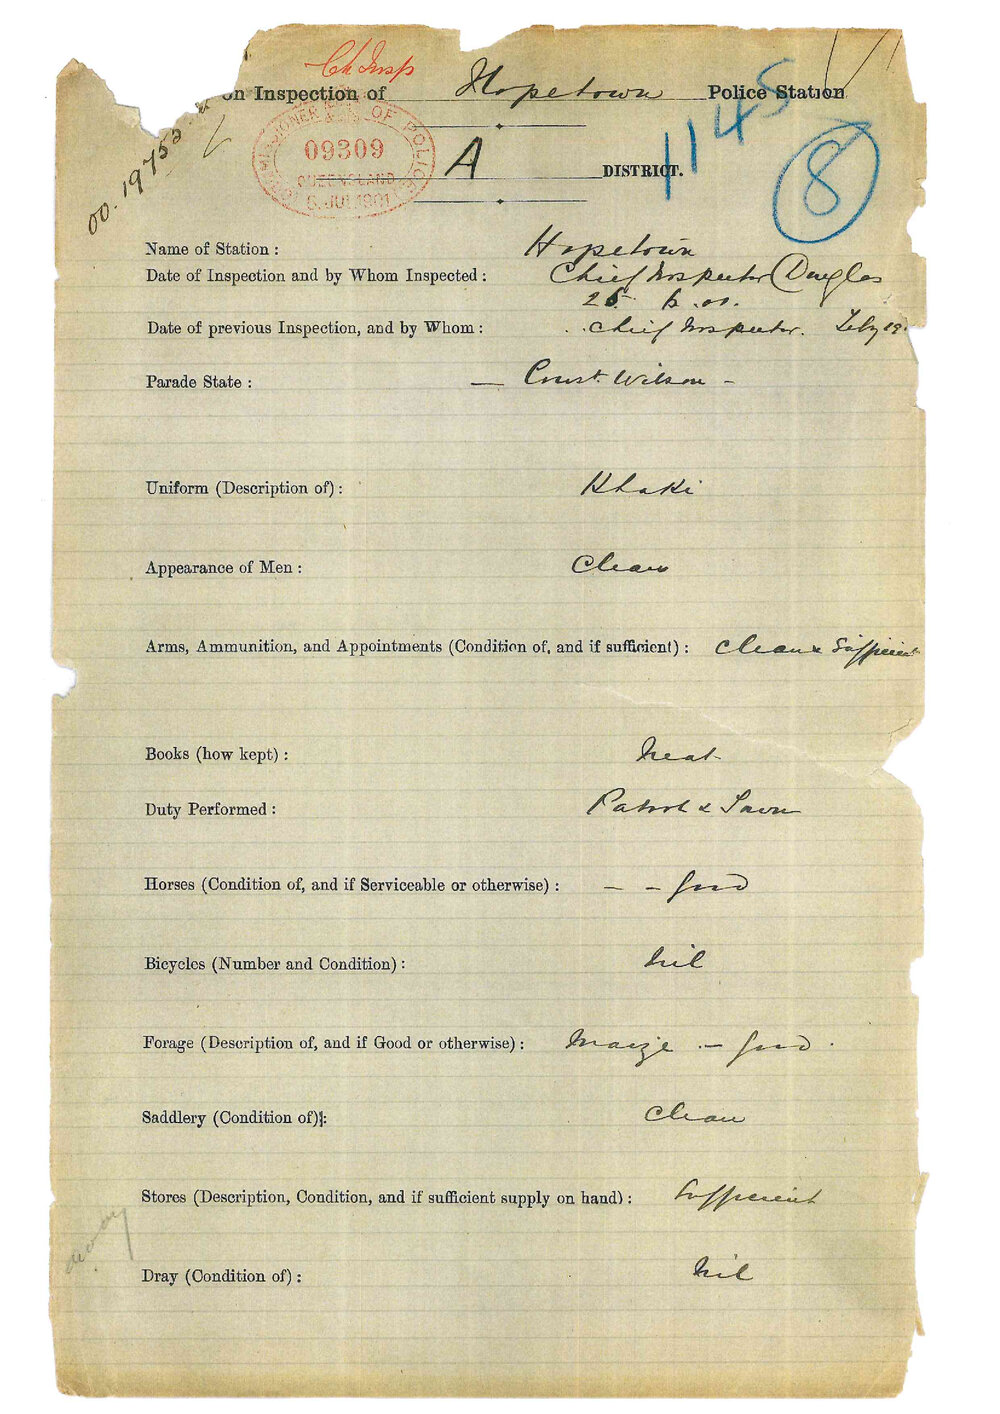 Ch Insp
on Inspection of Hopetown Police Station
00. 19753
COMMISSIONER OF POLICE
09309
QUEENSLAND
5. JUL 1901
1145
8
A DISTRICT.
Name of Station : Hopetown
Date of Inspection and by Whom Inspected : Chief Inspector Douglas
25. 6. 01.
Date of previous Inspection, and by Whom : Chief Inspector. Feby 19
Parade State : — Const. Wilson –
Uniform (Description of) : Khaki
Appearance of Men : Clean
Arms, Ammunition, and Appointments (Condition of, and if sufficient) : Clean & Sufficient
Books (how kept) : Neat
Duty Performed : Patrol & Town
Horses (Condition of, and if Serviceable or otherwise) : – – Good
Bicycles (Number and Condition) : Nil
Forage (Description of, and if Good or otherwise) : Maize – Good.
Saddlery (Condition of) : Clean
Stores (Description, Condition, and if sufficient supply on hand) : Sufficient
Dray (Condition of) : Nil